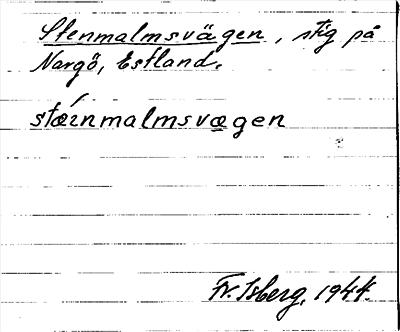 Stenmalmsvägen, stig på
Nargö, Estland.
stǽinmalmsvægen
Fr. Isberg, 1944.